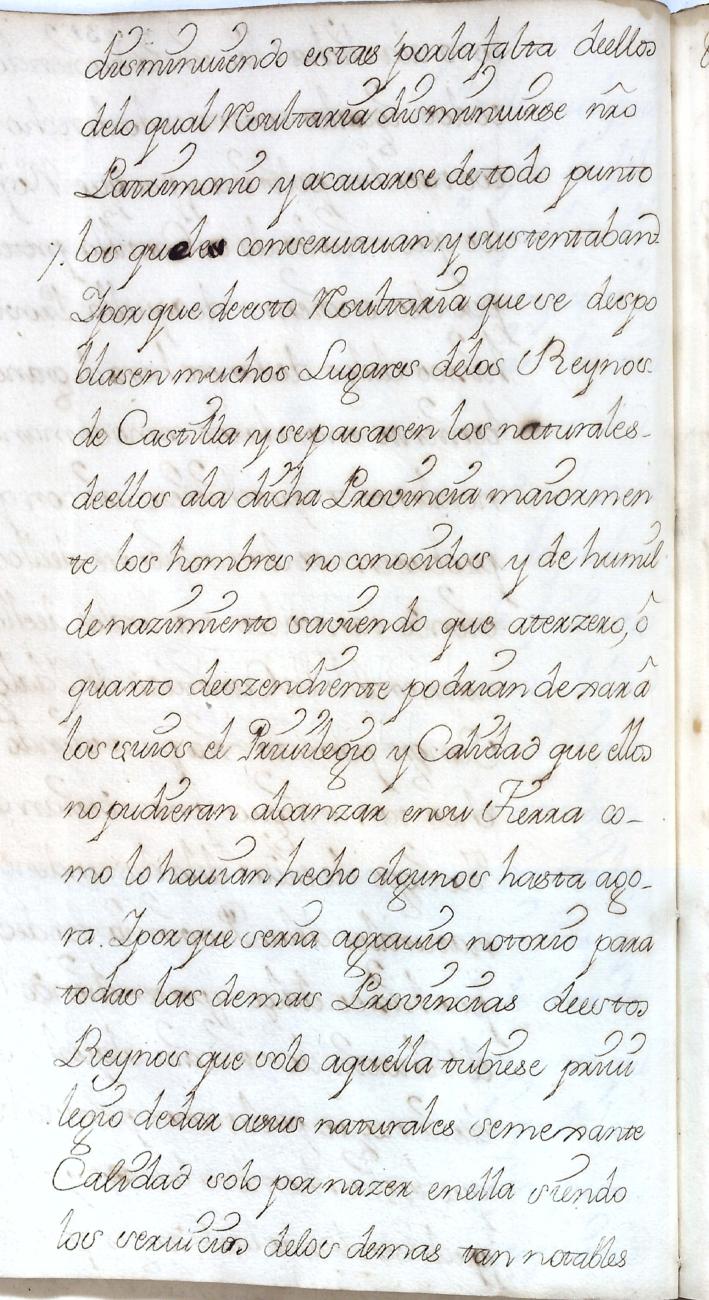 disminuiendo estas por la falta deellos
delo qual Resultaria disminuirse nr̃o
Patrimonio y acauarse de todo punto
7. los queles conseruauan y sustentaban
Ipor que deesto Resultaria que se despo
blasen muchos Lugares delos Reynos
de Castilla y se pasasen los naturales-
deellos ala dicha Provincia maiormen
te los hombres no conocidos y de humil
de nazimiento saviendo que aterzero, ô
quarto deszendiente podrian dexar â
los suios el Priuilegio y Calidad que ellos
no pudieran alcanzar ensu Tierra co-
mo lo hauian hecho algunos hasta ago-
ra. Ipor que seria agrauio notorio para
todas las demas Provincias deestos
Reynos que solo aquella tubiese priui
legio dedar asus naturales semexante
Calidad solo por nazer enella siendo
los seruicios delos demas tan notables